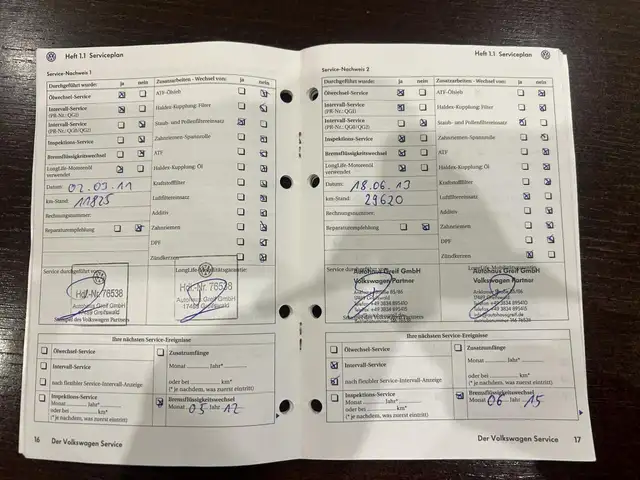 Heft 1.1 Serviceplan
Service-Nachweis 1
Durchgeführt wurde: ja nein Zusatzarbeiten - Wechsel von: ja nein
Ölwechsel-Service ATF-Ölsieb
Intervall-Service Haldex-Kupplung: Filter
(PR-Nr.: QG1)
Intervall-Service Staub- und Pollenfiltereinsatz
(PR-Nr.: QG0/QG2)
Inspektions-Service Zahnriemen-Spannrolle
Bremsflüssigkeitswechsel ATF
LongLife-Motorenöl Haldex-Kupplung: Öl
verwendet
Datum: 02.03.11 Kraftstofffilter
km-Stand: 11825 Luftfiltereinsatz
Rechnungsnummer: Additiv
Reparaturempfehlung Zahnriemen
DPF
Zündkerzen
Service durchgeführt von: LongLife-Mobilitätsgarantie:
Hdl.-Nr. 76538 Hdl.-Nr. 76538
Autohaus Greif GmbH Autohaus Greif GmbH
17489 Greifswald 17489 Greifswald
Stempel des Volkswagen Partners
Ihre nächsten Service-Ereignisse
Ölwechsel-Service Zusatzumfänge
Intervall-Service Monat Jahr*
nach flexibler Service-Intervall-Anzeige oder bei km*
(* je nachdem, was zuerst eintritt)
Inspektions-Service Bremsflüssigkeitswechsel
Monat Jahr* Monat 05 Jahr 12
oder bei km*
(* je nachdem, was zuerst eintritt)
16 Der Volkswagen Service
Heft 1.1 Serviceplan
Service-Nachweis 2
Durchgeführt wurde: ja nein Zusatzarbeiten - Wechsel von: ja nein
Ölwechsel-Service ATF-Ölsieb
Intervall-Service Haldex-Kupplung: Filter
(PR-Nr.: QG1)
Intervall-Service Staub- und Pollenfiltereinsatz
(PR-Nr.: QG0/QG2)
Inspektions-Service Zahnriemen-Spannrolle
Bremsflüssigkeitswechsel ATF
LongLife-Motorenöl Haldex-Kupplung: Öl
verwendet
Datum: 18.06.13 Kraftstofffilter
km-Stand: 29620 Luftfiltereinsatz
Rechnungsnummer: Additiv
Reparaturempfehlung Zahnriemen
DPF
Zündkerzen
Autohaus Greif GmbH Autohaus Greif GmbH
Volkswagen Partner Volkswagen Partner
Ihre nächsten Service-Ereignisse
Ölwechsel-Service Zusatzumfänge
Intervall-Service Monat Jahr*
nach flexibler Service-Intervall-Anzeige oder bei km*
(* je nachdem, was zuerst eintritt)
Inspektions-Service Bremsflüssigkeitswechsel
Monat Jahr* Monat 06 Jahr 15
oder bei km*
(* je nachdem, was zuerst eintritt)
Der Volkswagen Service 17